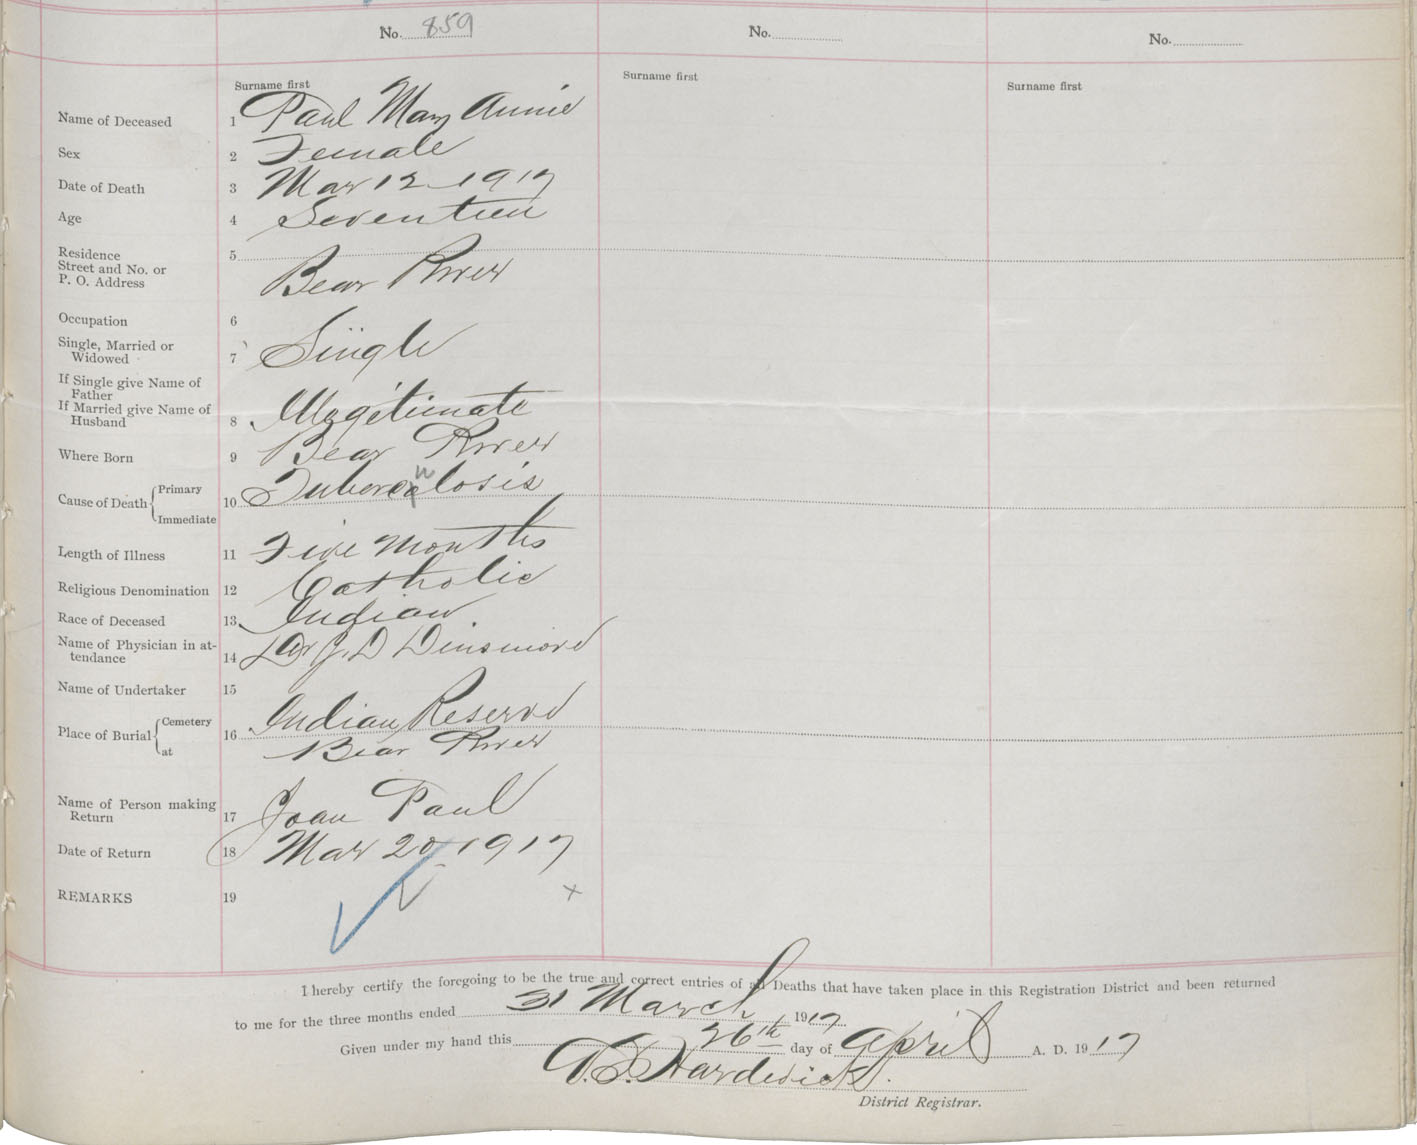 No. 859
No.
No.
Surname first
Surname first
Surname first
Name of Deceased 1 Paul Mary Annie
Sex 2 Female
Date of Death 3 Mar 12 1917
Age 4 Seventeen
Residence 5
Street and No. or
P. O. Address Bear River
Occupation 6
Single, Married or
Widowed 7 Single
If Single give Name of
Father
If Married give Name of
Husband 8 Illegitimate
Where Born 9 Bear River
Cause of Death Primary 10 Tuberculosis
Immediate
Length of Illness 11 Five Months
Religious Denomination 12 Catholic
Race of Deceased 13 Indian
Name of Physician in at-
tendance 14 Dr J. D Dinsmore
Name of Undertaker 15
Place of Burial Cemetery 16 Indian Reserve
at Bear River
Name of Person making
Return 17 Joan Paul
Date of Return 18 Mar 20 1917
REMARKS 19
I hereby certify the foregoing to be the true and correct entries of all Deaths that have taken place in this Registration District and been returned
to me for the three months ended 31 March 1917
Given under my hand this 26th day of April A. D. 1917
Hardwick
District Registrar.